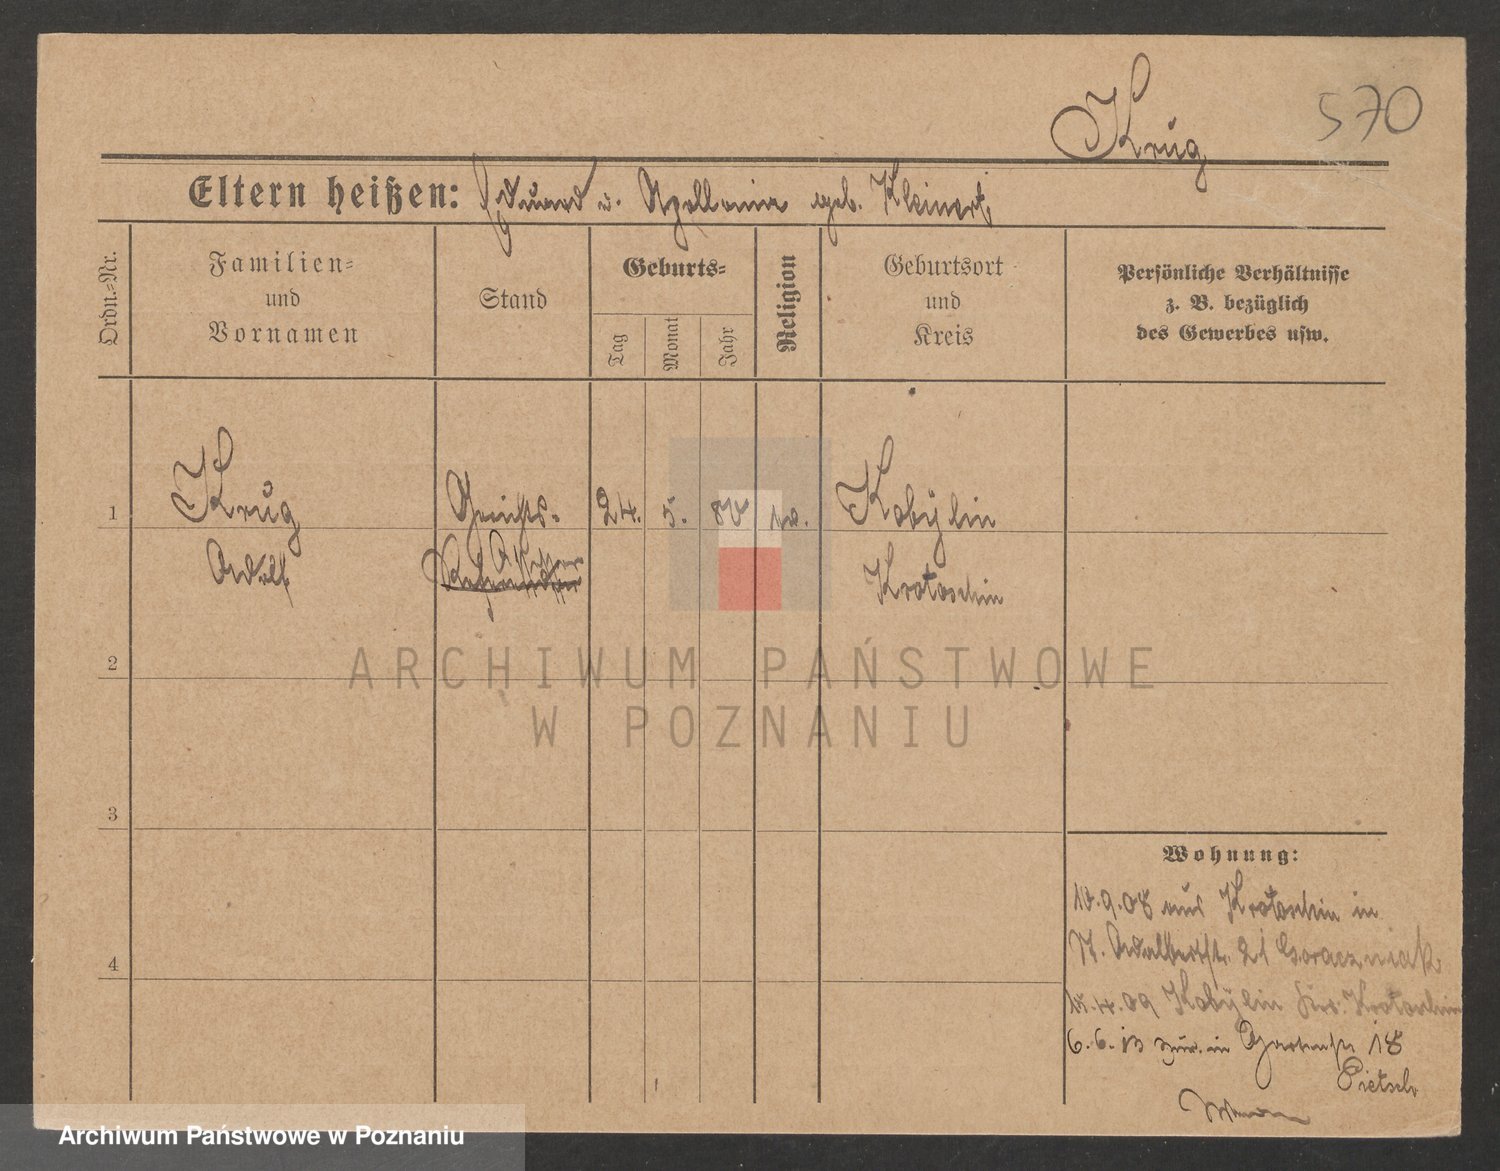 Krug 570
Eltern heißen: Eduard u. Apollonia geb. Kleinert
Ordn.-Nr.
Familien-
und
Vornamen
Stand
Geburts-
Tag
Monat
Jahr
Religion
Geburtsort
und
Kreis
Persönliche Verhältnisse
z. B. bezüglich
des Gewerbes usw.
1 Krug Gerichts- 24. 5. 80 Kobylin
Adolf Assessor Krotoschin
Referendar
2
3
4
ARCHIWUM PAŃSTWOWE
W POZNANIU
Wohnung:
10.9.08 aus Krotoschin in
St. Adalbertstr. 21 Goraczniak
15.4.09 Kobylin Krs. Krotoschin
6.6.13 zur. in Gartenstr 18
Pietsch
Archiwum Państwowe w Poznaniu